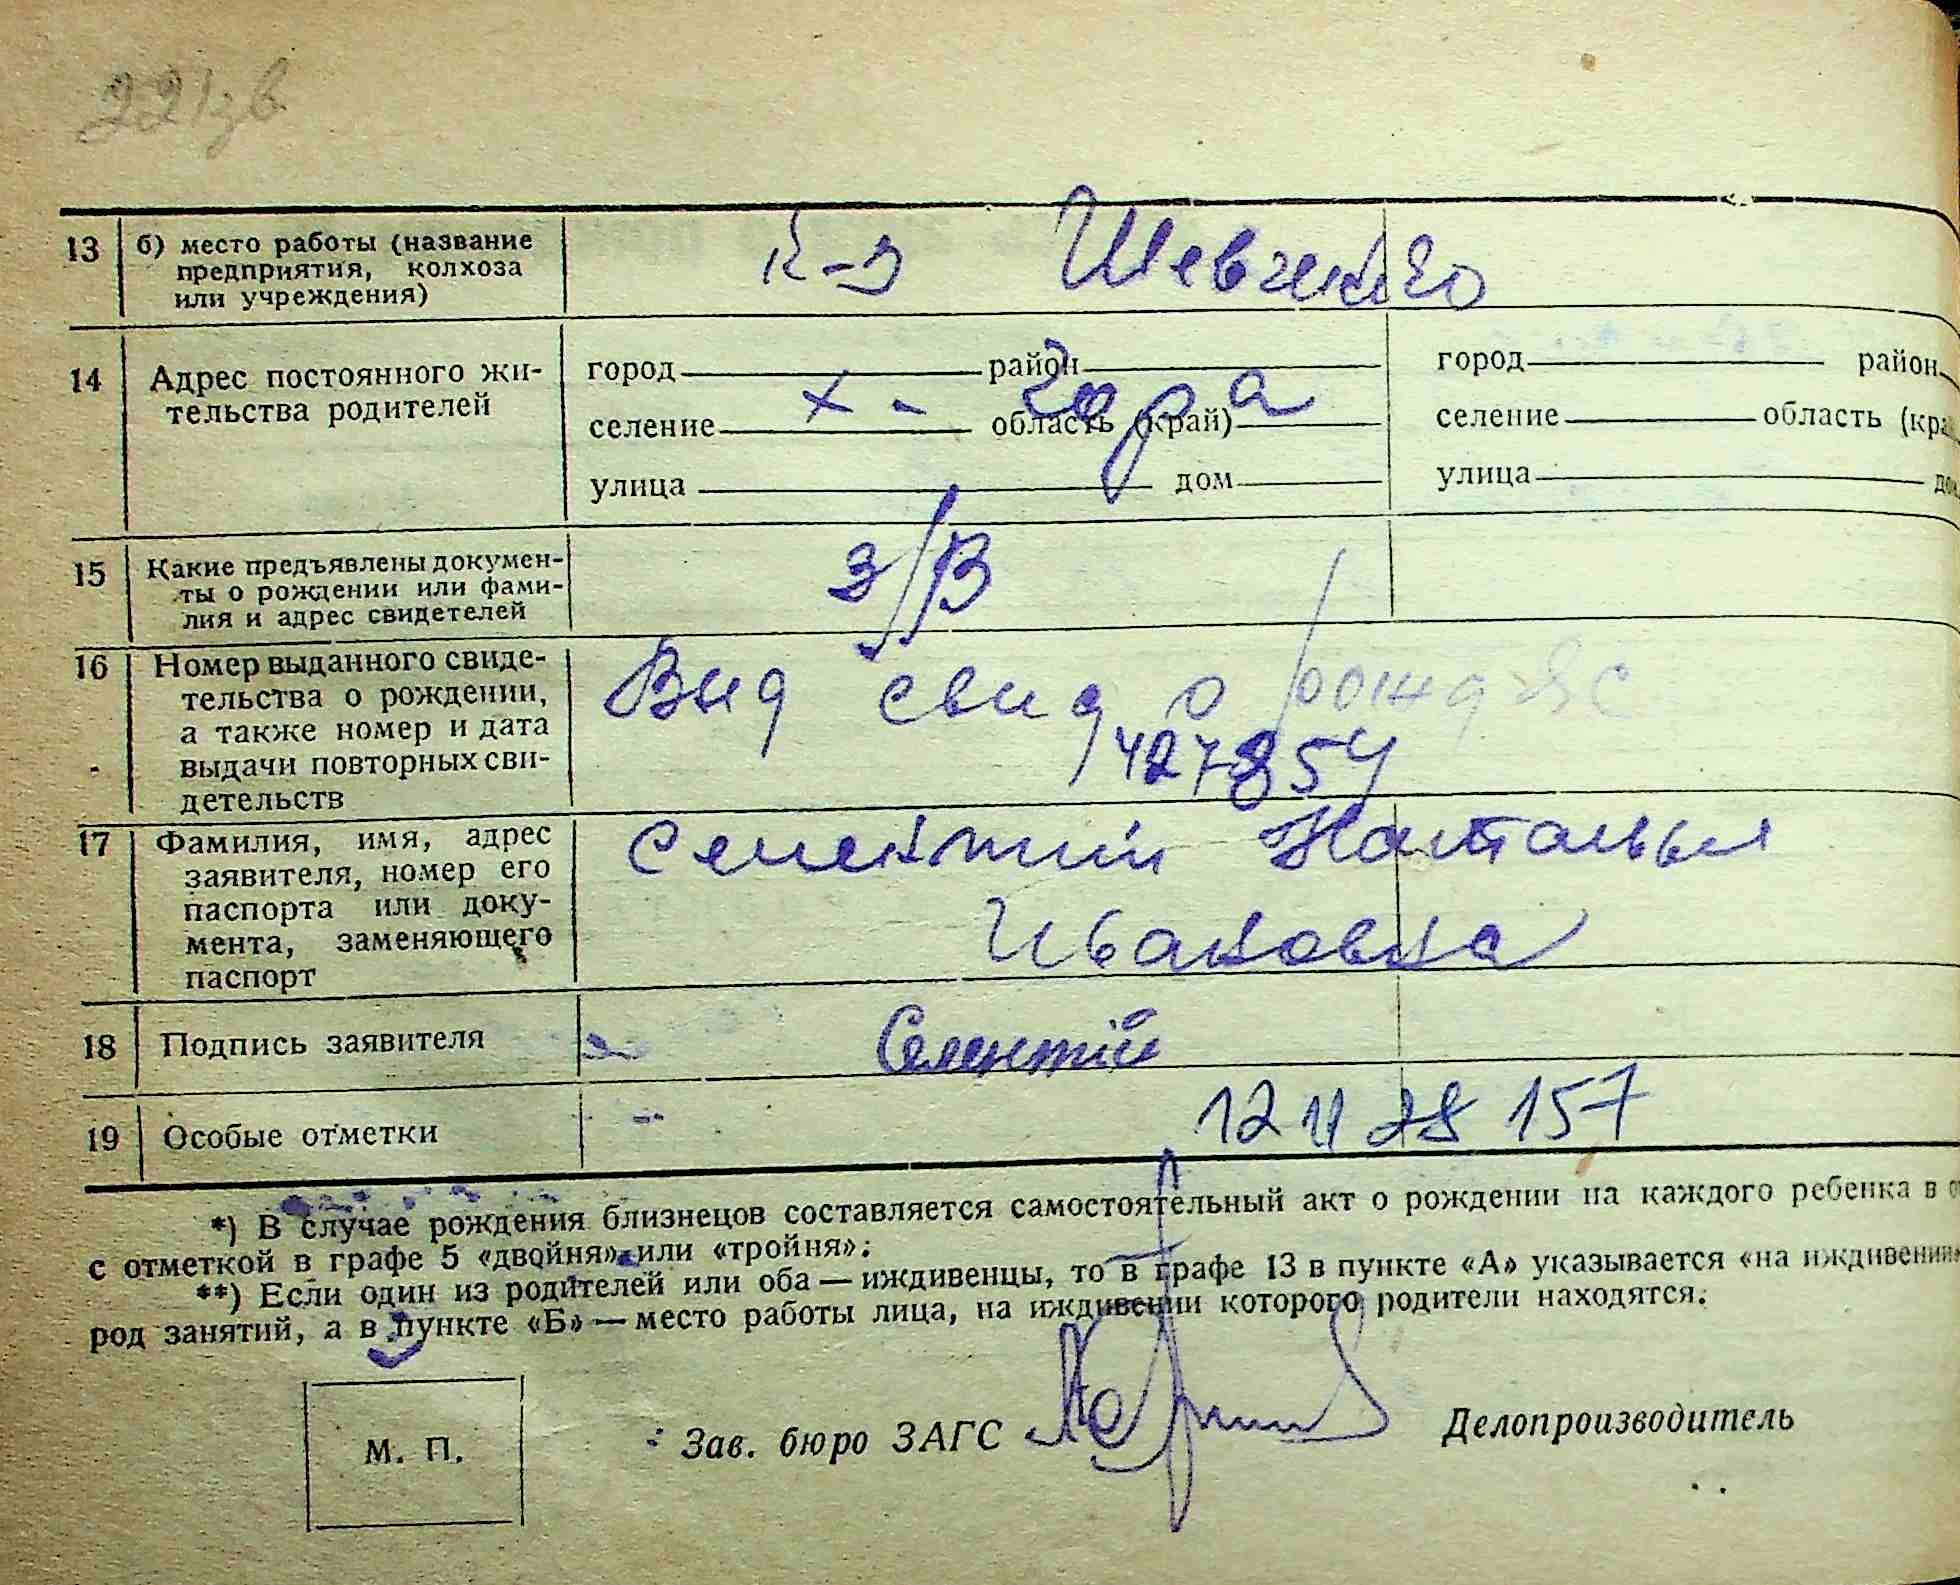 221зв
13 б) место работы (название
предприятия, колхоза
или учреждения)
к-з Шевченко
14 Адрес постоянного жи-
тельства родителей
город район
х-
селение область (край)
улица дом
город район
селение область (кра
улица до
15 Какие предъявлены докумен-
ты о рождении или фами-
лия и адрес свидетелей
З/В
16 Номер выданного свиде-
тельства о рождении,
а также номер и дата
выдачи повторных сви-
детельств
Выд свид о рожд ЯС
427854
17 Фамилия, имя, адрес
заявителя, номер его
паспорта или доку-
мента, заменяющего
паспорт
Наталья
Ивановна
18 Подпись заявителя
19 Особые отметки
157
*) В случае рождения близнецов составляется самостоятельный акт о рождении на каждого ребенка в о
с отметкой в графе 5 «двойня» или «тройня»;
**) Если один из родителей или оба — иждивенцы, то в графе 13 в пункте «А» указывается «на иждивении»
род занятий, а в пункте «Б» — место работы лица, на иждивении которого родители находятся.
М. П.
Зав. бюро ЗАГС
Делопроизводитель